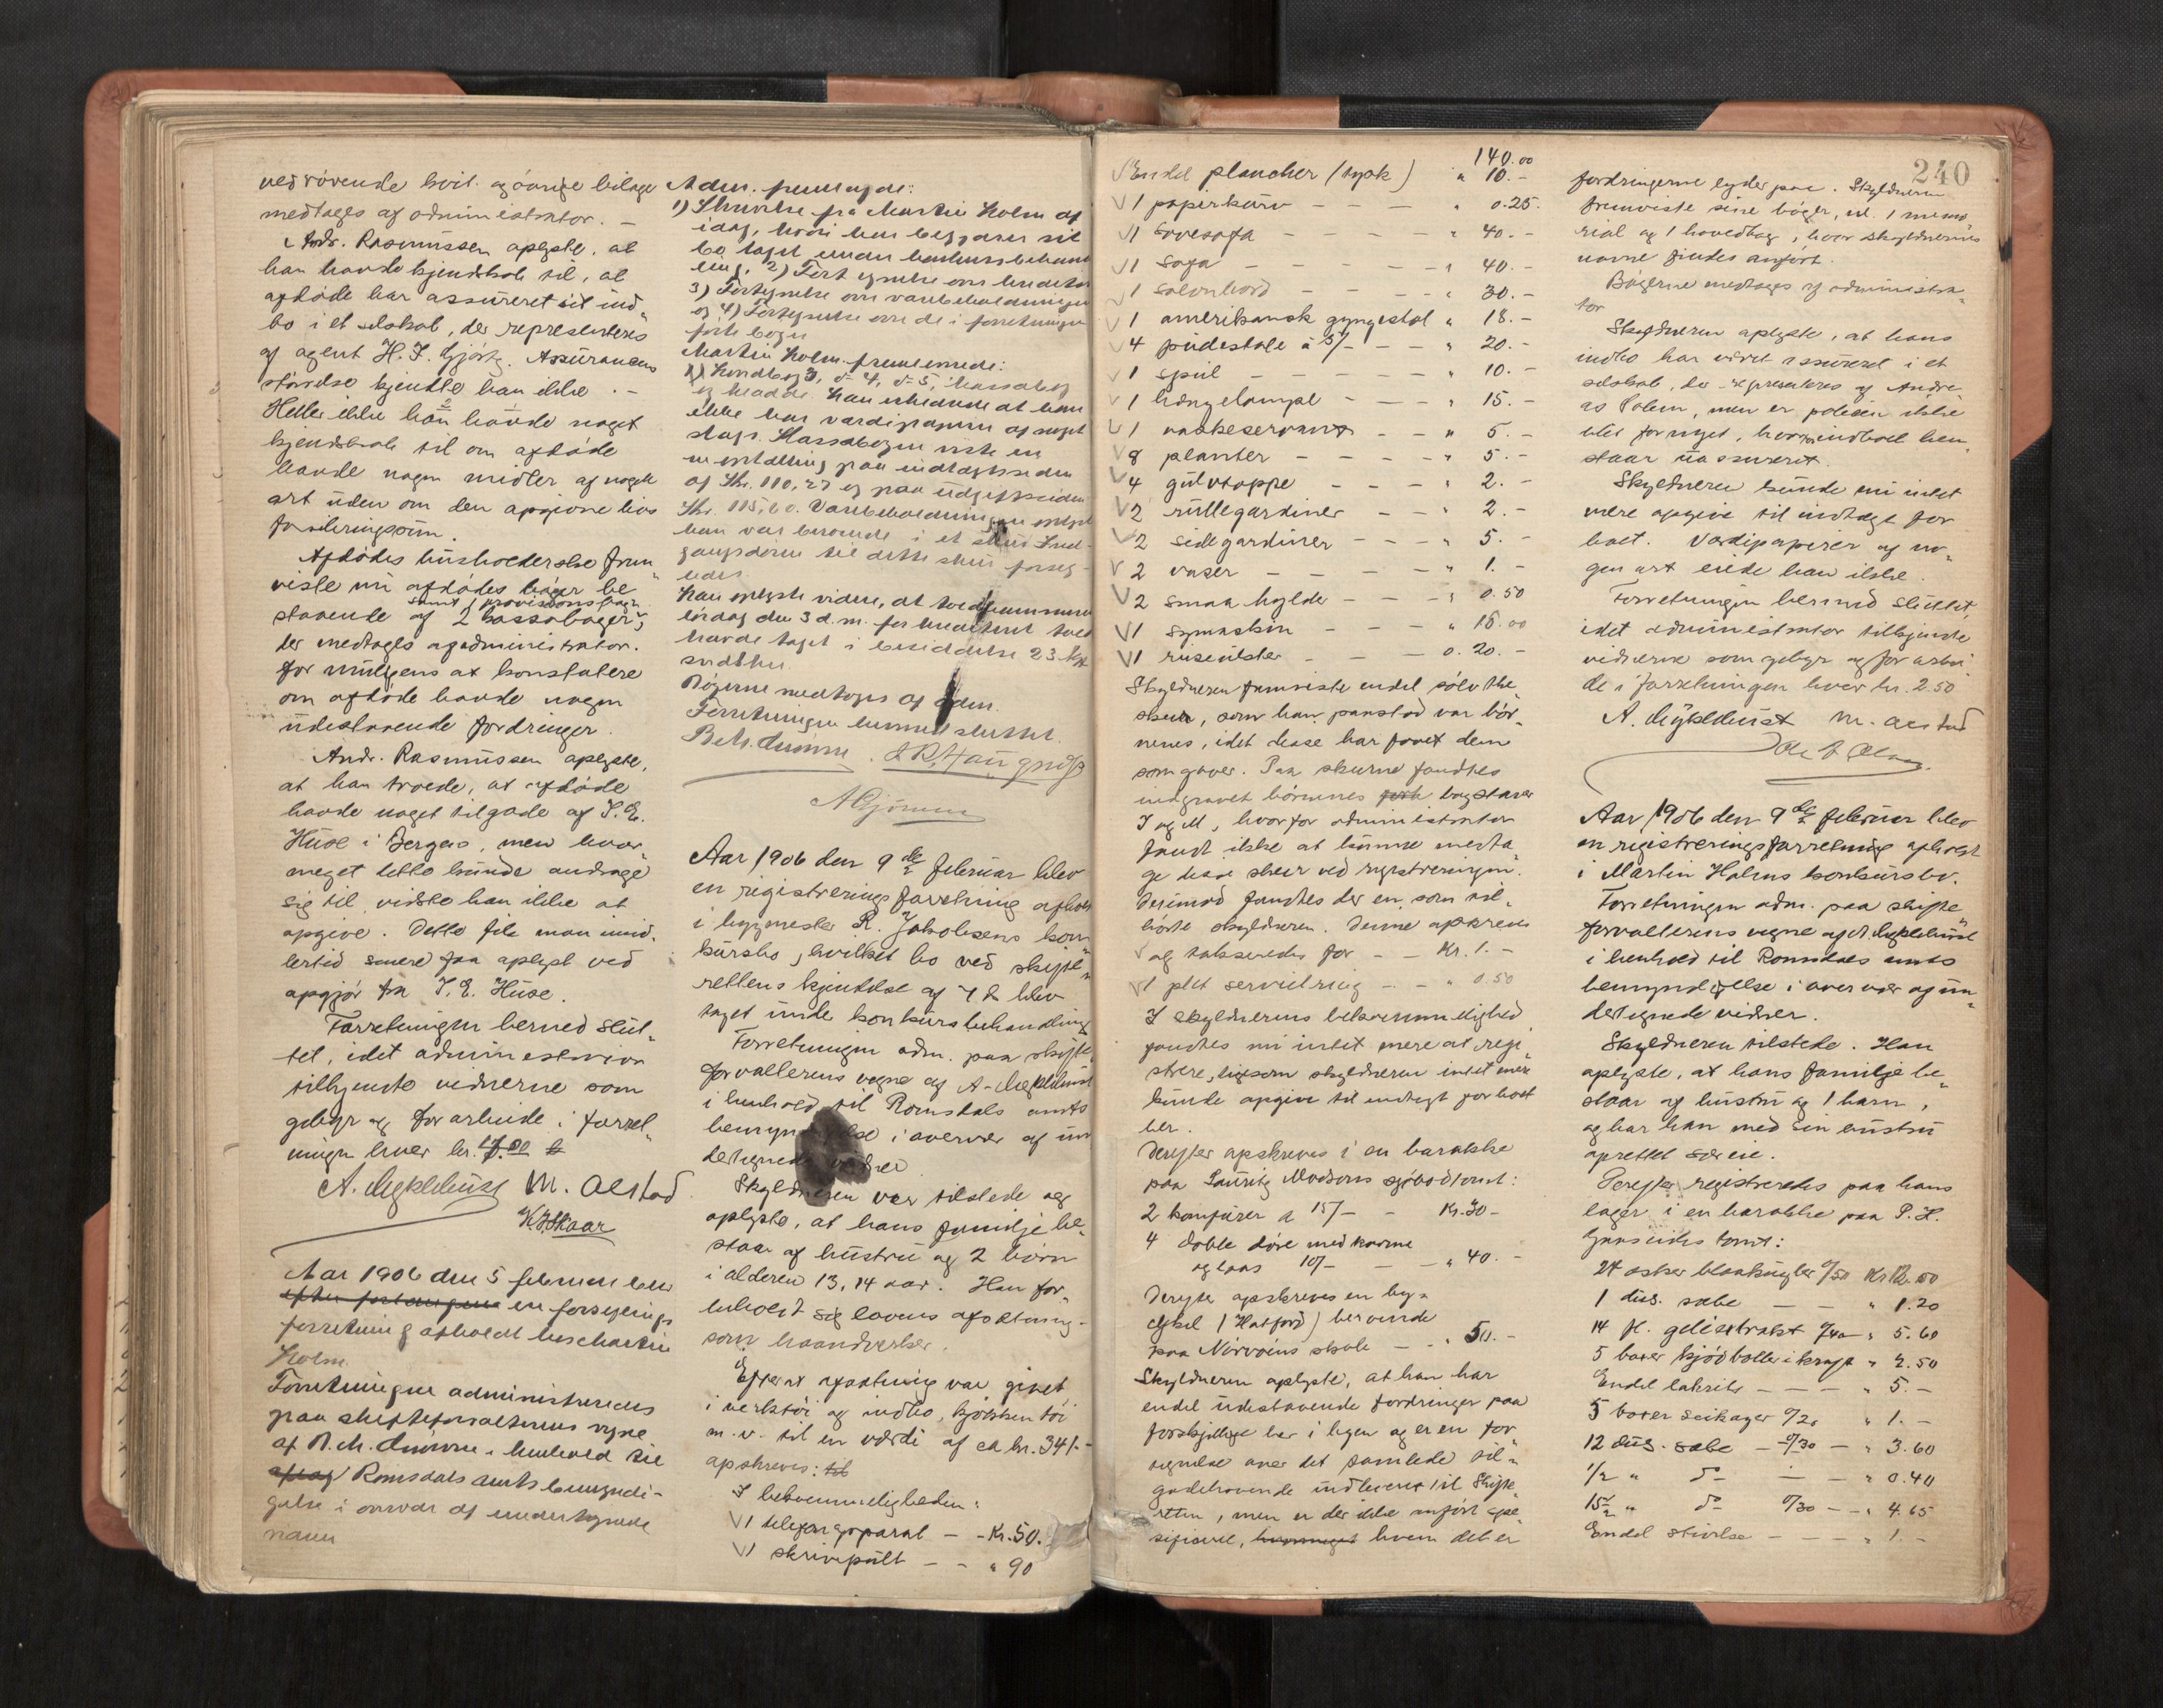 vedrörende kvit. og övrige bilage
medtages af administrator. —
Andr. Rasmussen oplyste, at
han havde kjendskab til, at
afdöde har assureret sit ind„
bo i et selskab, der representeres
af agent H. J. Gjörtz. Assurancens
störelse kjendte han ikke. —
Heller ikke han havde noget
kjendskab til om afdöde
havde nogen midler af noget
art uden om den opgivne livs
forsikringssum.
Afdödes husholderske frem„
viste nu afdödes böger be„
staaende af 2 kassaböger,
samt 1 provisionsbog
der medtages af administrator.
for muligens at konstatere
om afdöde havde nogen
udestaaende fordringer.
Andr. Rasmussen oplyste,
at han troede, at afdöde
havde noget tilgode af I. E.
Huse i Bergen, men hvor„
meget dette kunde andrage
sig til vidste han ikke at
opgive. Dette fik man imid„
lertid senere faa oplyst ved
opgjör fra I. E. Huse.
Forretningen hermed slut„
tet, idet administrator
tilkjendte vidnerne som
gebyr og for arbeide i forret„
ningen hver kr.
A. Myklebust M. Aestad
Aar 1906 den 5 februar blev
en forseglings
forretning afholdt hos Martin
Holm.
Forretningen administreredes
paa skifteforvalterens vegne
af i henhold til
Romsdals amts bemyndi-
gelse i overvær af undertegnede
vidner
Adm. fremlagde:
1) Skrivelse fra Martin Holm af
idag, hvori han begjærer sit
bo taget under konkursbehand
ling, 2) Fortegnelse om kreditor
3) Fortegnelse om varebeholdningen
og 4) Fortegnelse om de i forretningen
förte böger
Martin Holm fremlevrede:
han erklærede at han
ikke har værdipapirer af noget
slags. Kassabogen viste en
paa indtægtssiden
af Kr. 110,27 og paa udgiftssiden
Kr. 115,60. Varebeholdningen oplyste
han var beroende i et skur. Ind-
gangsdören til dette skur forseg-
ledes.
Han oplyste videre, at
lördag den 3 d.m.
havde taget i besiddelse 23
Bögerne medtoges af adm.
Forretningen hermed sluttet.
Aar 1906 den 9de februar blev
en registreringsforretning afholdt
i bygmester R. Jakobsens kon„
kursbo, hvilket bo ved skifte„
rettens kjendelse af 7 ds blev
taget under konkursbehandling
Forretningen adm. paa skifte„
forvalterens vegne af A. Myklebust
i henhold til Romsdals amts
i overvær af un„
dertegnede vidner.
Skyldneren var tilstede og
oplyste, at hans familje be„
staar af hustru og 2 börn
i alderen 13, 14 aar. Han for„
beholdt sig lovens afsætning
som haandverker.
Efter at afsætning var givet
i verktöi og indbo, kjökkentöi
m. v. til en værdi af ca kr. 341.-
opskreves:
I bekvemmeligheden:
V 1 telefonapparat — - Kr. 50.
V 1 skrivepult — - „ 90
240
140.00
V Endel plancher (tysk) „ 10.-
V 1 papirkurv — — — „ 0.25.
V 1 sovesofa — — — „ 40.-
V 1 sofa — — — „ 40.-
V 1 salonbord — — — „ 30.-
V 1 amerikansk gyngestol „ 18.-
V 4 pudestole à 5/- — — „ 20.-
V 1 speil — — — „ 10.-
V 1 hængelampe — — „ 15.-
V 1 vaskeservant — — „ 5.-
V 8 planter — — — „ 5.-
V 4 gulvtæppe — — — „ 2.-
V 2 rullegardiner — — „ 2.-
V 2 sidegardiner — — — „ 5.-
V 2 vaser — — — „ 1.-
V 2 smaa hylde — — — „ 0.50
V 1 symaskin — — — „ 15.00
V 1 reiseulster — — 0. 20.-
Skyldneren fremviste endel sölv the„
skeer, som han paastod var bör„
nenes, idet disse har faaet dem
som gaver. Paa skeerne fandtes
indgravet börnenes bogstaver
I og M, hvorfor administrator
fandt ikke at kunne medta„
ge disse skeer ved registreringen.
Derimod fandtes der en, som til„
hörte skyldneren. Denne opskreves
V og takseredes for — — Kr. 1.-
V 1 plet servietring — — „ 0.50
I skyldnerens bekvemmelighed
fandtes nu intet mere at regi„
strere, ligesom skyldneren intet mere
kunde opgive til indtægt for boet
her.
Derefter opskreves i en barakke
paa Lauritz Madsens sjöbodtomt:
2 komfurer a 15/- — Kr. 30-
4 doble döre med karme
og laas 10/- — — „ 40.-
Derefter opskreves en by„
cykel (Hatford) beroende
paa Nörvöens skole — - „ 50.-
Skyldneren oplyste, at han har
endel udestaaende fordringer paa
forskjellige her i byen og er en for„
tegnelse over det samlede til„
godehavende indleveret til Skifte„
retten, men er der ikke anfört spe„
sificeret, hvem det er
fordringerne lyder paa. Skyldneren
fremviste sine böger, nl. 1 memo„
rial og 1 hovedbog, hvor skyldnernes
navne findes anfört.
Bögerne medtages af administra„
tor
Skyldneren oplyste, at hans
indbo har været assureret i et
selskab, der representeres af Andre„
as Solem, men er policen ikke
blet fornyet, hvorfor indboet hen„
staar uassureret.
Skyldneren kunde nu intet
mere opgive til indtægt for
boet. Værdipapirer af no„
gen art eiede han ikke.
Forretningen hermed sluttet,
idet administrator tilkjendte
vidnerne som gebyr og for arbei„
de i forretningen hver kr. 2.50
A. Myklebust M. Aestad
Aar 1906 den 9de februar blev
en registreringsforretning afholdt
i Martin Holms konkursbo.
Forretningen adm. paa skifte„
forvalterens vegne af A. Myklebust
i henhold til Romsdals amts
bemyndigelse i overvær af un„
dertegnede vidner.
Skyldneren tilstede. Han
oplyste, at hans familje be„
staar af hustru og 1 barn,
og har han med sin hustru
oprettet særeie.
Derefter registreredes paa hans
lager i en barakke paa P. H.
tomt:
24 æsker blaakugler 0/50 Kr 12.00
1 dus. sæbe — — „ 1.20
14 fl. geléextrakt 0/40 „ 5.60
5 boxer kjödboller i kraft „ 2.50
Endel lakrits — — — „ 5.-
5 boxer seikager 0/20 „ 1.-
12 dus. sæbe — 0/30 — „ 3.60
1/2 „ do — — „ 0.40
15 1/2 „ do 0/30 — „ 4.65
Endel stivelse — — „ 1.-